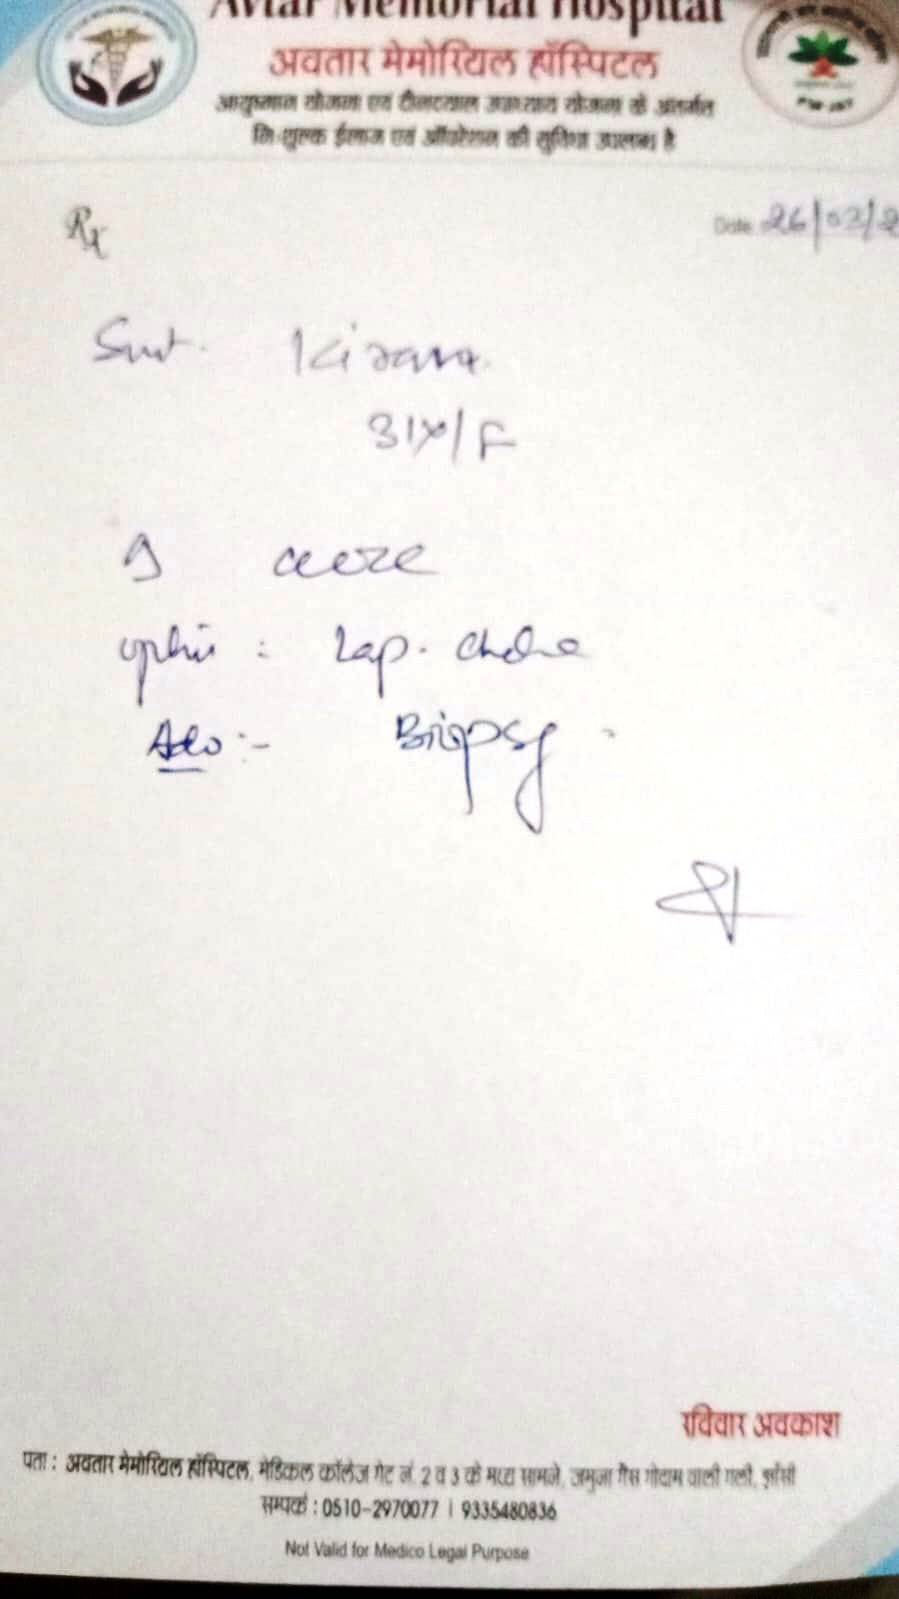 Avtar Memorial Hospital
अवतार मेमोरियल हॉस्पिटल
आयुष्मान योजना एवं दीनदयाल उपाध्याय योजना के अंतर्गत
नि:शुल्क ईलाज एवं ऑपरेशन की सुविधा उपलब्ध है
Rx
Date 26/02/2
Smt. Kirana
31Y/F
Lap. Chole
Adv :- Biopsy
रविवार अवकाश
पता : अवतार मेमोरियल हॉस्पिटल, मेडिकल कॉलेज गेट नं. 2 व 3 के मध्य सामने, जमुना गैस गोदाम वाली गली, झाँसी
सम्पर्क : 0510-2970077 | 9335480836
Not Valid for Medico Legal Purpose